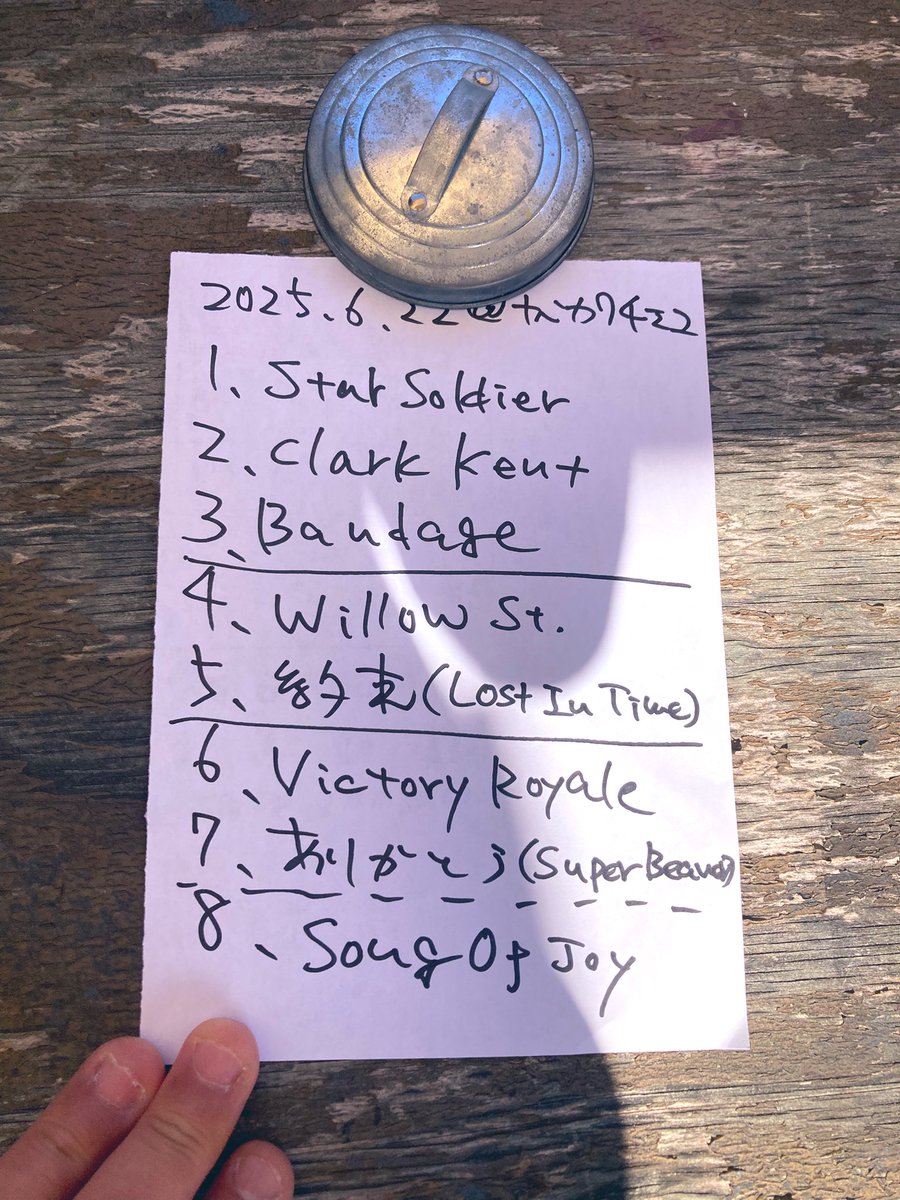 2025.6.22@
1、Star Soldier
2、Clark Kent
3、Bandage
4、Willow St.
5、約束(Lost In Time)
6、Victory Royale
7、ありがとう(Super Beaver)
8、Song Of Joy